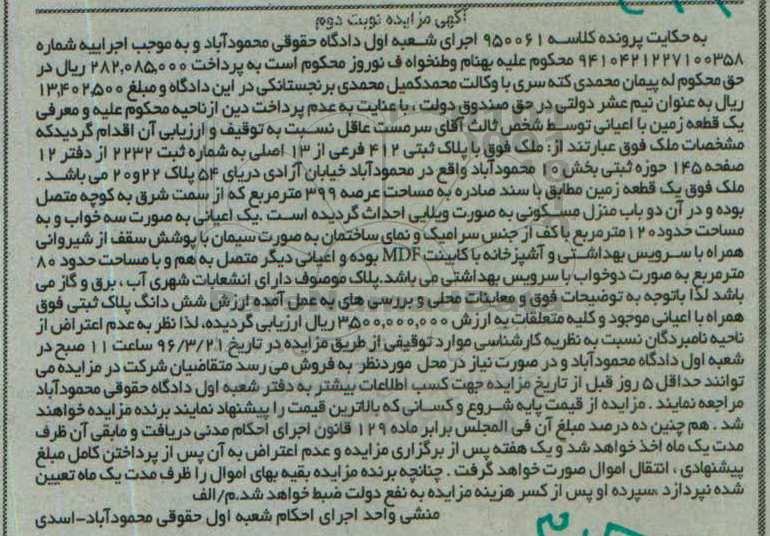 آگهی مزایده نوبت دوم
به حکایت پرونده کلاسه ۹۵۰۰۶۱ اجرای شعبه اول دادگاه حقوقی محمودآباد و به موجب اجراییه شماره
۹۴۱۰۴۲۱۲۲۷۱۰۰۳۵۸ محکوم علیه بهنام وطنخواه ف نوروز محکوم است به پرداخت ۲۸۲،۰۸۵،۰۰۰ ریال در
حق محکوم له پیمان محمدی کته سری با وکالت محمدکمیل محمدی برنجستانکی در این دادگاه و مبلغ ۱۳،۴۰۲،۵۰۰
ریال به عنوان نیم عشر دولتی در حق صندوق دولت ، با عنایت به عدم پرداخت دین از ناحیه محکوم علیه و معرفی
یک قطعه زمین با اعیانی توسط شخص ثالث آقای سرمست عاقل نسبت به توقیف و ارزیابی آن اقدام گردیدکه
مشخصات ملک فوق عبارتند از: ملک فوق با پلاک ثبتی ۴۱۲ فرعی از ۱۳ اصلی به شماره ثبت ۲۲۳۲ از دفتر ۱۲
صفحه ۱۴۵ حوزه ثبتی بخش ۱۰ محمودآباد واقع در محمودآباد خیابان آزادی دریای ۵۴ پلاک ۲۲و۲۰ می باشد .
ملک فوق یک قطعه زمین مطابق با سند صادره به مساحت عرصه ۳۹۹ مترمربع که از سمت شرق به کوچه متصل
بوده و در آن دو باب منزل مسکونی به صورت ویلایی احداث گردیده است .یک اعیانی به صورت سه خواب و به
مساحت حدود۱۲۰مترمربع با کف از جنس سرامیک و نمای ساختمان به صورت سیمان با پوشش سقف از شیروانی
همراه با سرویس بهداشتی و آشپزخانه با کابینت MDF بوده و اعیانی دیگر متصل به هم و با مساحت حدود ۸۰
مترمربع به صورت دوخواب با سرویس بهداشتی می باشد.پلاک موصوف دارای انشعابات شهری آب ، برق و گاز می
باشد لذا باتوجه به توضیحات فوق و معاینات محلی و بررسی های به عمل آمده ارزش شش دانگ پلاک ثبتی فوق
همراه با اعیانی موجود و کلیه متعلقات به ارزش ۳،۵۰۰،۰۰۰،۰۰۰ ریال ارزیابی گردیده، لذا نظر به عدم اعتراض از
ناحیه نامبردگان نسبت به نظریه کارشناسی موارد توقیفی از طریق مزایده در تاریخ ۹۶/۳/۲۱ ساعت ۱۱ صبح در
شعبه اول دادگاه محمودآباد و در صورت نیاز در محل موردنظر به فروش می رسد متقاضیان شرکت در مزایده می
توانند حداقل ۵ روز قبل از تاریخ مزایده جهت کسب اطلاعات بیشتر به دفتر شعبه اول دادگاه حقوقی محمودآباد
مراجعه نمایند . مزایده از قیمت پایه شروع و کسانی که بالاترین قیمت را پیشنهاد نمایند برنده مزایده خواهند
شد . هم چنین ده درصد مبلغ آن فی المجلس برابر ماده ۱۲۹ قانون اجرای احکام مدنی دریافت و مابقی آن ظرف
مدت یک ماه اخذ خواهد شد و یک هفته پس از برگزاری مزایده و عدم اعتراض به آن پس از پرداختن کامل مبلغ
پیشنهادی ، انتقال اموال صورت خواهد گرفت . چنانچه برنده مزایده بقیه بهای اموال را ظرف مدت یک ماه تعیین
شده نپردازد ،سپرده او پس از کسر هزینه مزایده به نفع دولت ضبط خواهد شد.م/الف
منشی واحد اجرای احکام شعبه اول حقوقی محمودآباد-اسدی